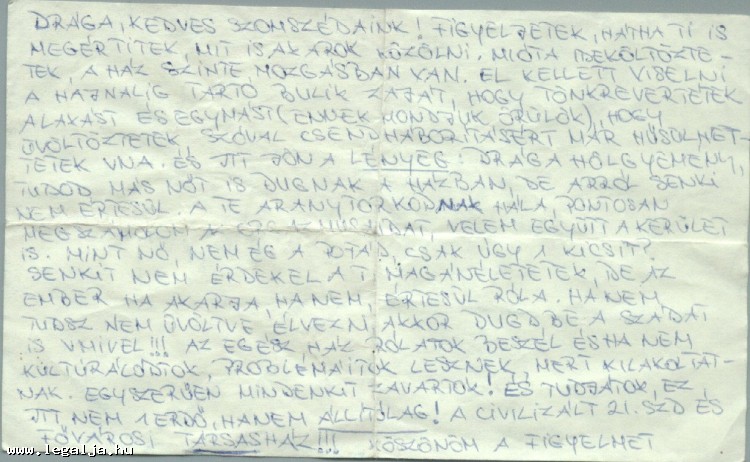 DRÁGA, KEDVES SZOMSZÉDAINK! FIGYELJETEK, HÁTHA TI IS
MEGÉRTITEK, MIT IS AKAROK KÖZÖLNI. MIÓTA BEKÖLTÖZTE-
TEK, A HÁZ SZINTE MOZGÁSBAN VAN. EL KELLETT VISELNI
A HAJNALIG TARTÓ BULIK ZAJÁT, HOGY TÖNKREVERTÉTEK
A LAKÁST ÉS EGYMÁST (ENNEK MONDJUK ÖRÜLÖK), HOGY
ÜVÖLTÖZTETEK, SZÓVAL CSENDHÁBORÍTÁSÉRT MÁR HŰSÖLHET-
TETEK VNA. ÉS ITT JÖN A LÉNYEG: DRÁGA HÖLGYEMÉNY,
TUDOD MÁS NŐT IS DUGNAK A HÁZBAN, DE ARRÓL SENKI
NEM ÉRTESÜL. A TE ARANYTORKODNAK HÁLA, PONTOSAN
MEGSZÁMOLOM AZ VELEM EGYÜTT A KERÜLET
IS. MINT NŐ, NEM ÉG A POFÁD, CSAK ÚGY 1 KICSIT?
SENKIT NEM ÉRDEKEL A TI MAGÁNÉLETETEK, DE AZ
EMBER HA AKARJA, HA NEM ÉRTESÜL RÓLA. HA NEM
TUDSZ NEM ÜVÖLTVE ÉLVEZNI AKKOR DUGD BE A SZÁDAT
IS VMIVEL!!! AZ EGÉSZ HÁZ RÓLATOK BESZÉL ÉS HA NEM
KULTÚRÁLÓDTOK, PROBLÉMÁITOK LESZNEK, MERT KILAKOLTAT-
NAK. EGYSZERŰEN MINDENKIT ZAVARTOK! ÉS TUDJÁTOK, EZ
ITT, NEM 1 ERDŐ, HANEM ÁLLÍTÓLAG! A CIVILIZÁLT 21. SZD ÉS
FŐVÁROSI TÁRSASHÁZ!!! KÖSZÖNÖM A FIGYELMET
www.legalja.hu